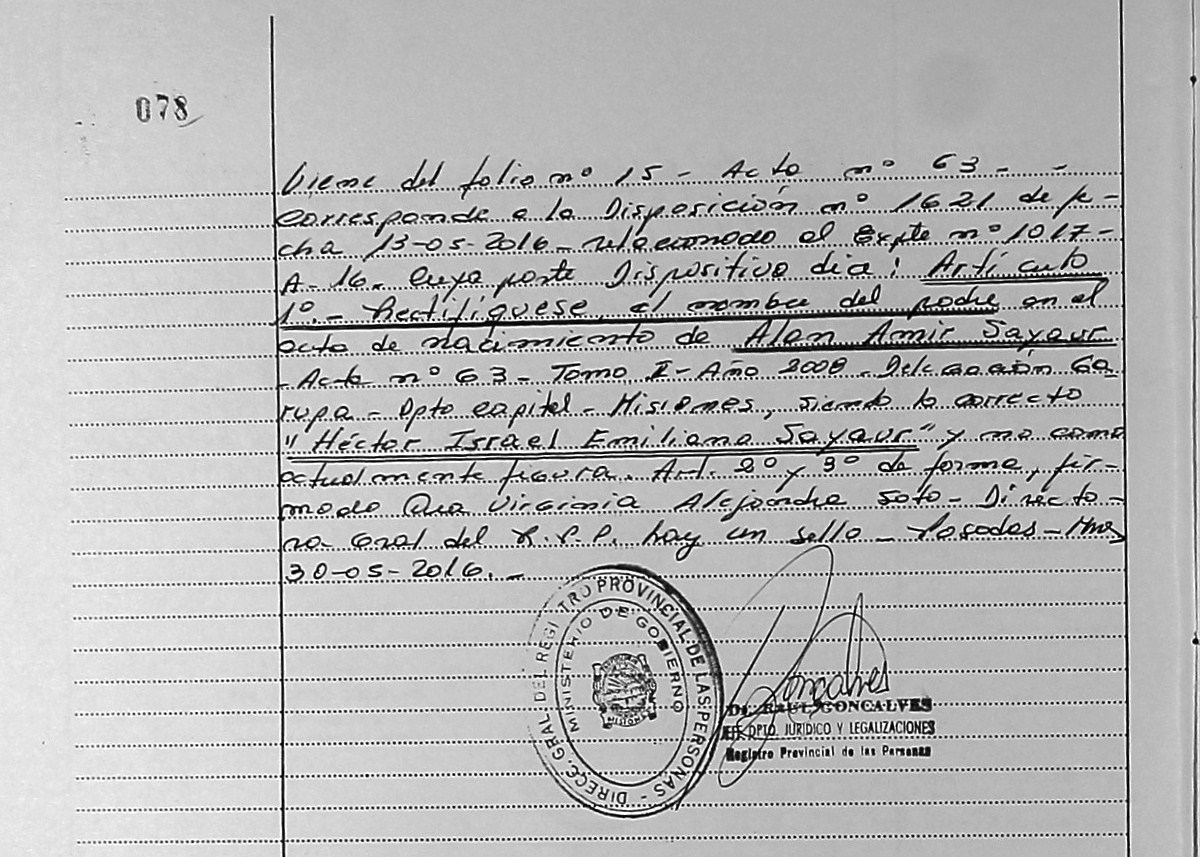 078
Viene del folio nº 15 - Acta nº 63 - -
corresponde a la Disposición nº 1621 de fe-
cha 13-05-2016 - relacionado al Expte nº 1017-
A-16. cuya parte Dispositiva dia: Artículo
1º.- Rectifíquese, el nombre del padre en el
acta de nacimiento de Alan Amir Sayaur
- Acta nº 63 - Tomo I - Año 2008 - Delegación Ga-
rupa - Dpto capital - Misiones, siendo lo correcto
"Héctor Israel Emiliano Sayaur" y no como
actualmente figura. Art. 2º y 3º de forma, fir-
mado Virginia Alejandra Soto - Directo-
ra Gral del R.P.P. hay un sello - Posadas - Mnes
30-05-2016. -
DIRECC. GRAL. DEL REGISTRO PROVINCIAL DE LAS PERSONAS -
MINISTERIO DE GOBIERNO
MISIONES
Goncalves
Dr. RAUL GONCALVES
JEFE DPTO. JURIDICO Y LEGALIZACIONES
Registro Provincial de las Personas